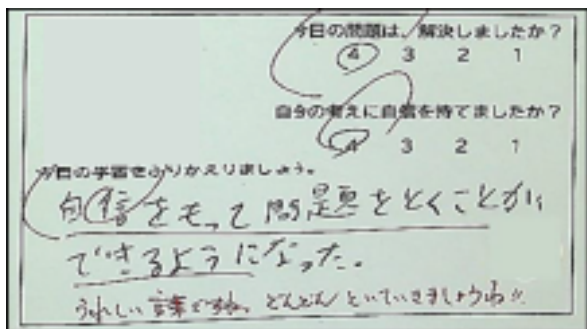 今日の問題は、解決しましたか?
4 3 2 1
自分の考えに自信を持てましたか?
4 3 2 1
今日の学習をふりかえりましょう。
自信をもって問題をとくことが
できるようになった。
うれしい言葉ですね。どんどんといていきましょうね!!